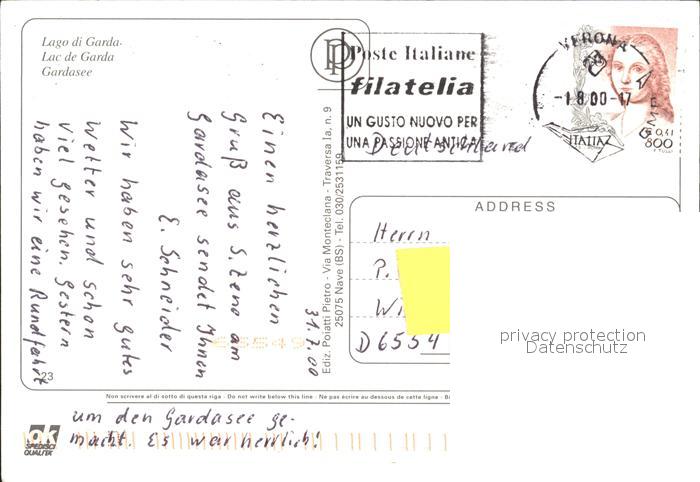 Lago di Garda
Lac de Garda
Gardasee
PP
Poste Italiane
filatelia
UN GUSTO NUOVO PER
UNA PASSIONE ANTICA
VERONA
-1.8.00-17
ITALIA
€0,41
800
Deutschland
31.7.00
Einen herzlichen
Gruß aus S. Zeno am
Gardasee sendet Ihnen
E. Schneider
Wir haben sehr gutes
Wetter und schon
viel gesehen. Gestern
haben wir eine Rundfahrt
um den Gardasee ge-
macht. Es war herrlich!
Ediz. Poiatti Pietro - Via Monteclana - Traversa Ia, n. 9
25075 Nave (BS) - Tel. 030/2531159
65549
ADDRESS
Herrn
P.
Wi
D 6554
privacy protection
Datenschutz
23
Non scrivere al di sotto di questa riga - Do not write below this line - Ne pas écrire au dessous de cette ligne - B
ok
SPEDISCI
QUALITA'